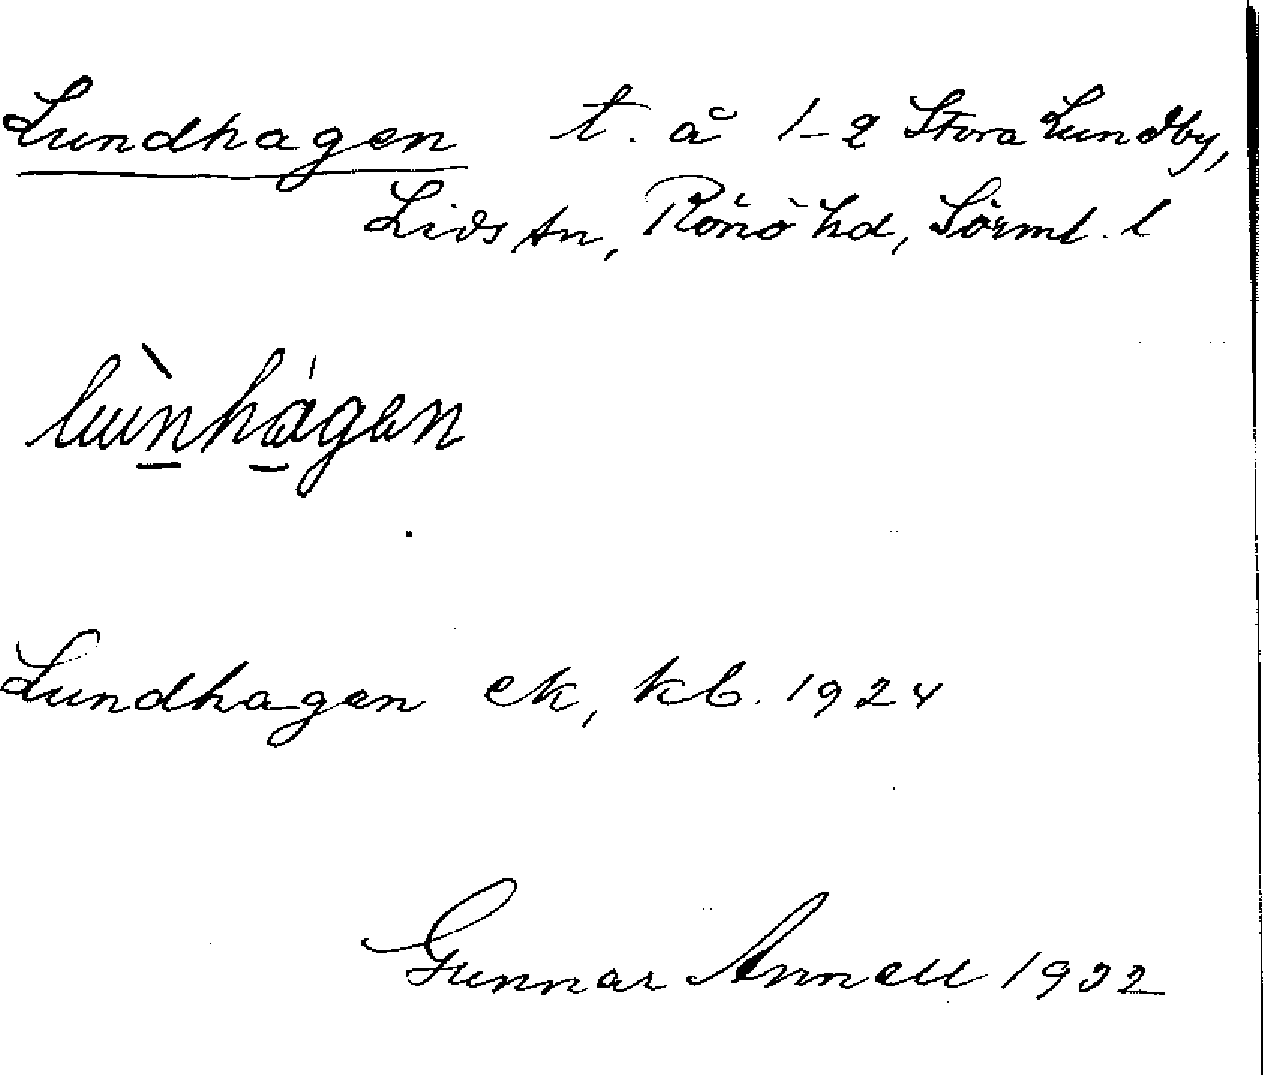 Lundhagen t. å 1-2 Stora Lundby,
Lids sn, Rönö hd, Sörml. l
luǹ̠há̠gen
Lundhagen ek, kb. 1924
Gunnar Annell 1932